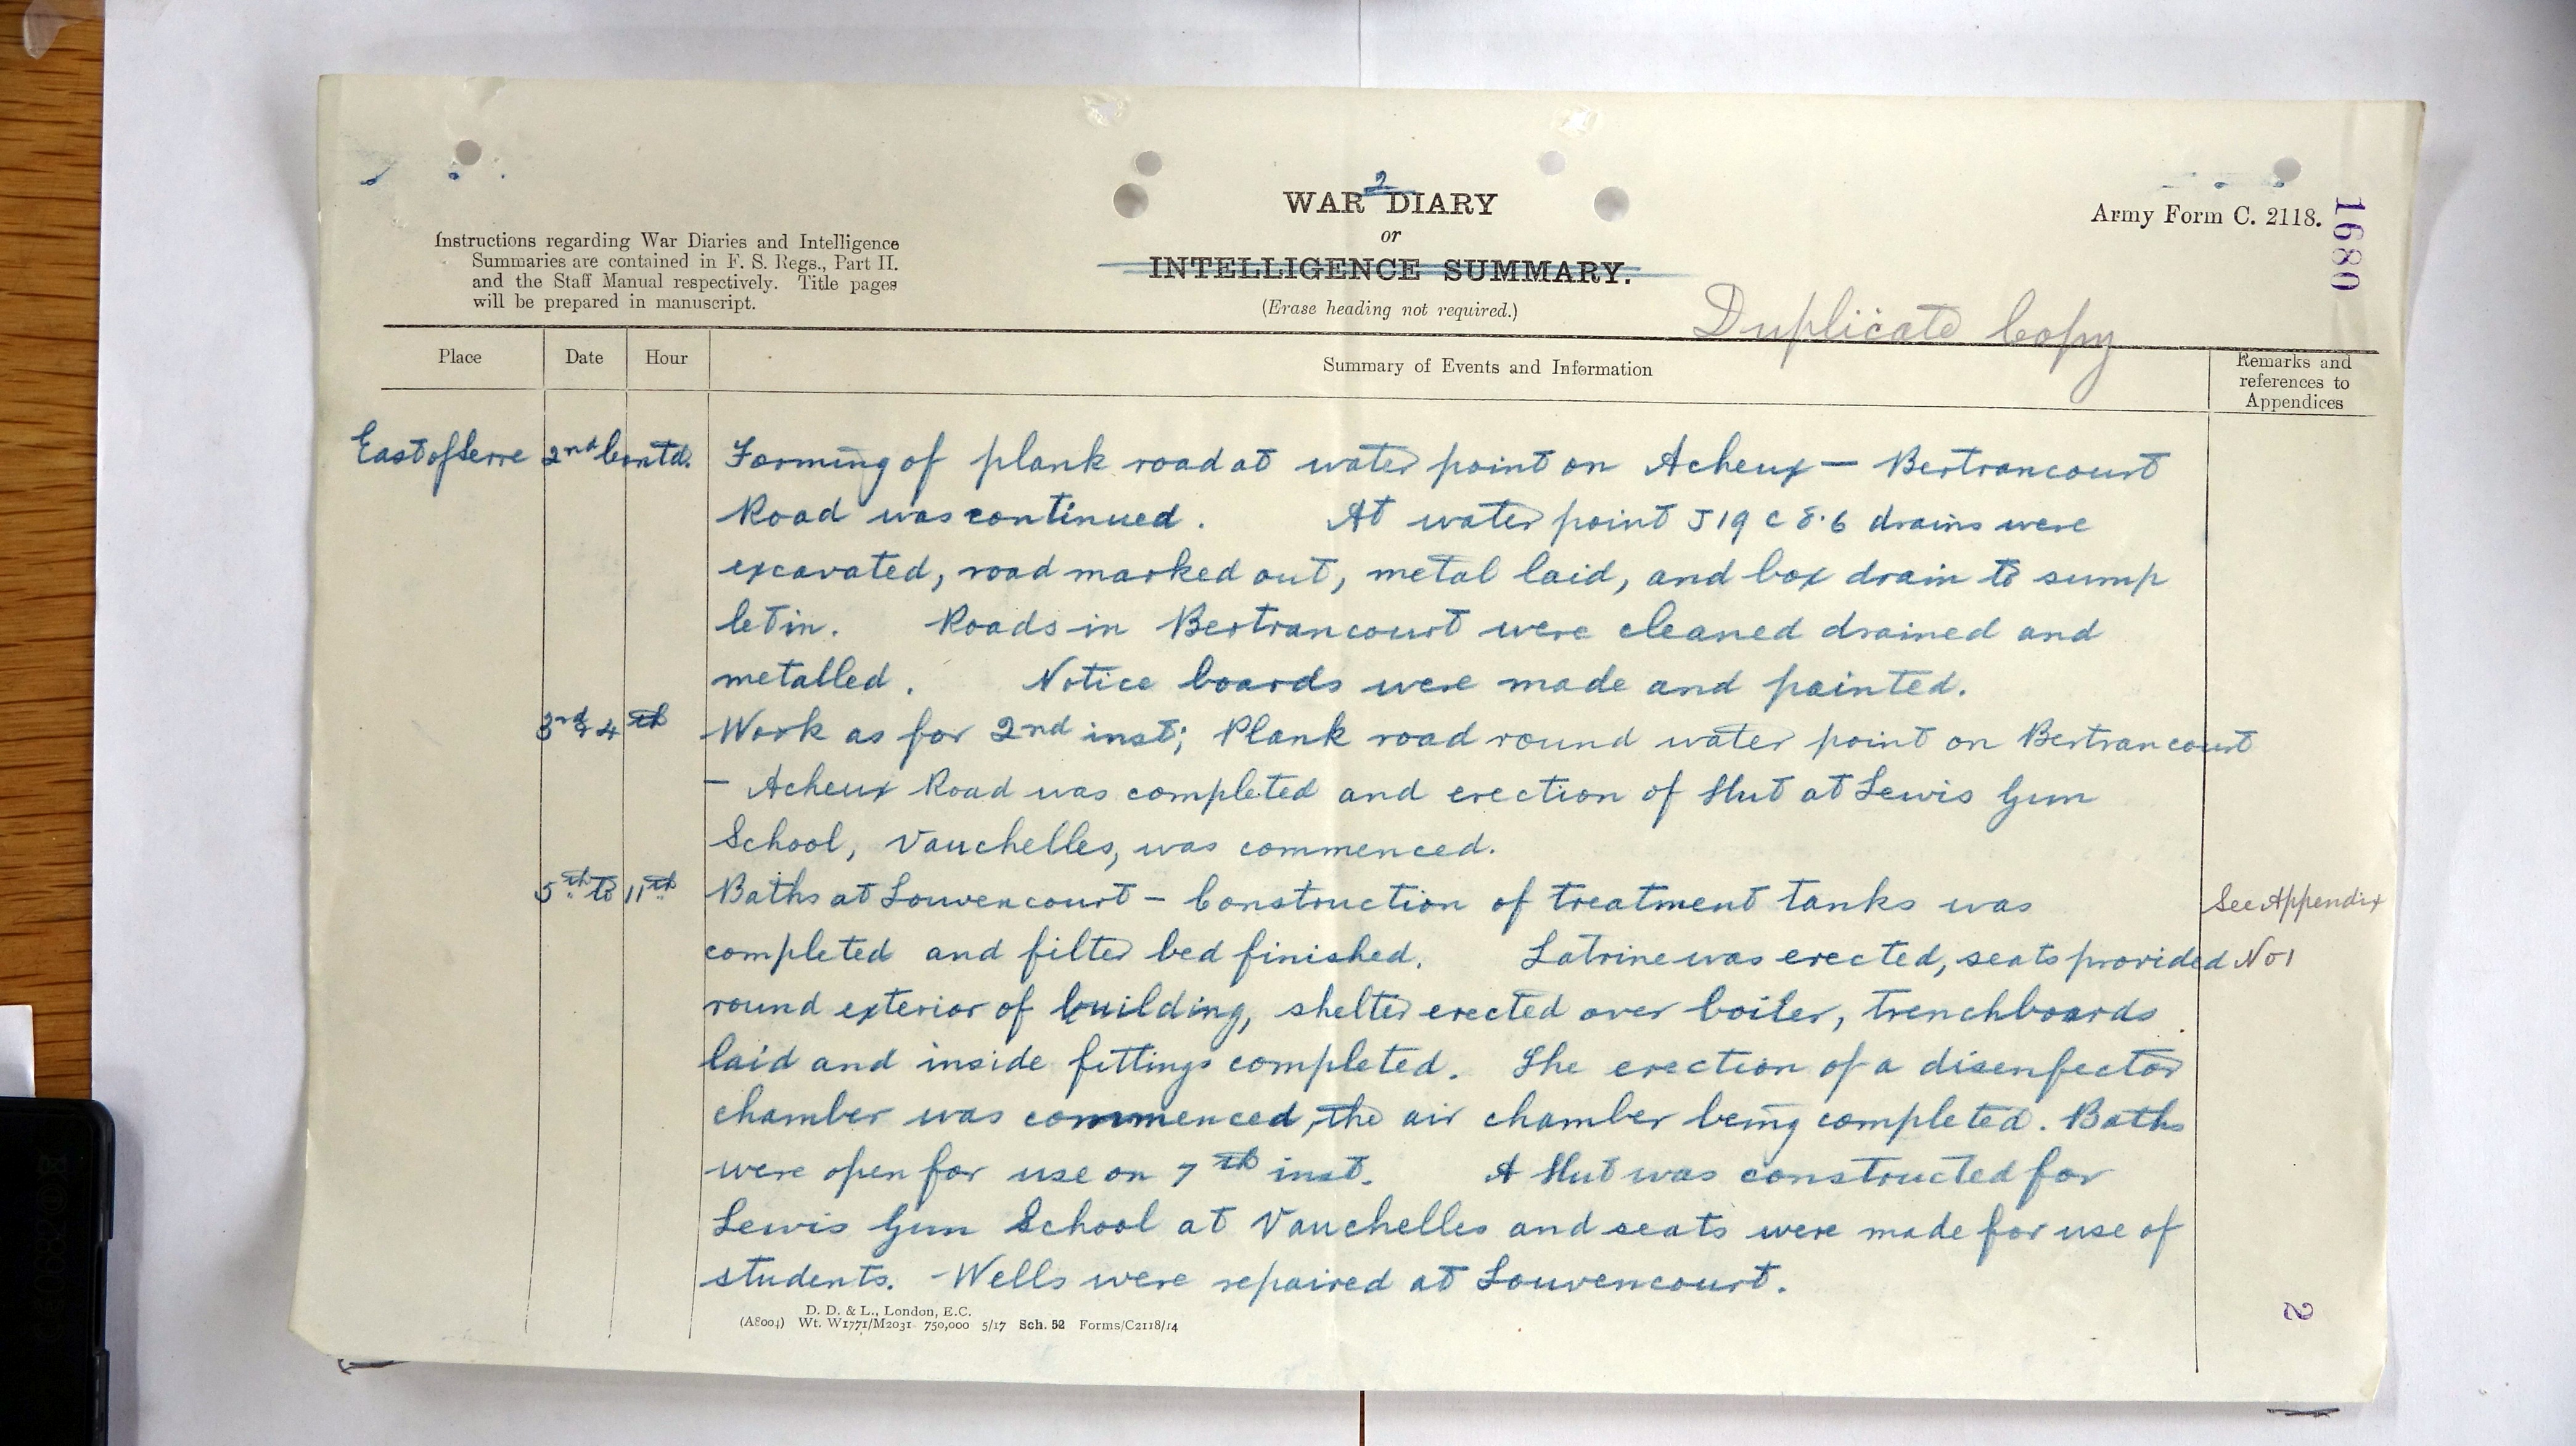 2
WAR DIARY
or
INTELLIGENCE SUMMARY.
(Erase heading not required.)
Army Form C. 2118.
1680
Instructions regarding War Diaries and Intelligence
Summaries are contained in F. S. Regs., Part II.
and the Staff Manual respectively. Title pages
will be prepared in manuscript.
Duplicate Copy
Place Date Hour Summary of Events and Information Remarks and references to Appendices
East of Serre 2nd Contd. Forming of plank road at water point on Acheux — Bertrancourt
Road was continued. At water point J 19 c 8.6 drains were
excavated, road marked out, metal laid, and box drain to sump
let in. Roads in Bertrancourt were cleaned drained and
metalled. Notice boards were made and painted.
3rd & 4th Work as for 2nd inst; Plank road round water point on Bertrancourt
— Acheux Road was completed and erection of Hut at Lewis Gun
School, Vauchelles, was commenced.
5th to 11th Baths at Louvencourt — Construction of treatment tanks was See Appendix
completed and filter bed finished. Latrine was erected, seats provided No 1
round exterior of building, shelter erected over boiler, trenchboards
laid and inside fittings completed. The erection of a disenfector
chamber was commenced, the air chamber being completed. Baths
were open for use on 7th inst. A Hut was constructed for
Lewis Gun School at Vauchelles and seats were made for use of
students. Wells were repaired at Louvencourt.
D. D. & L., London, E.C.
(A8004) Wt. W1771/M2031 750,000 5/17 Sch. 52 Forms/C2118/14
2